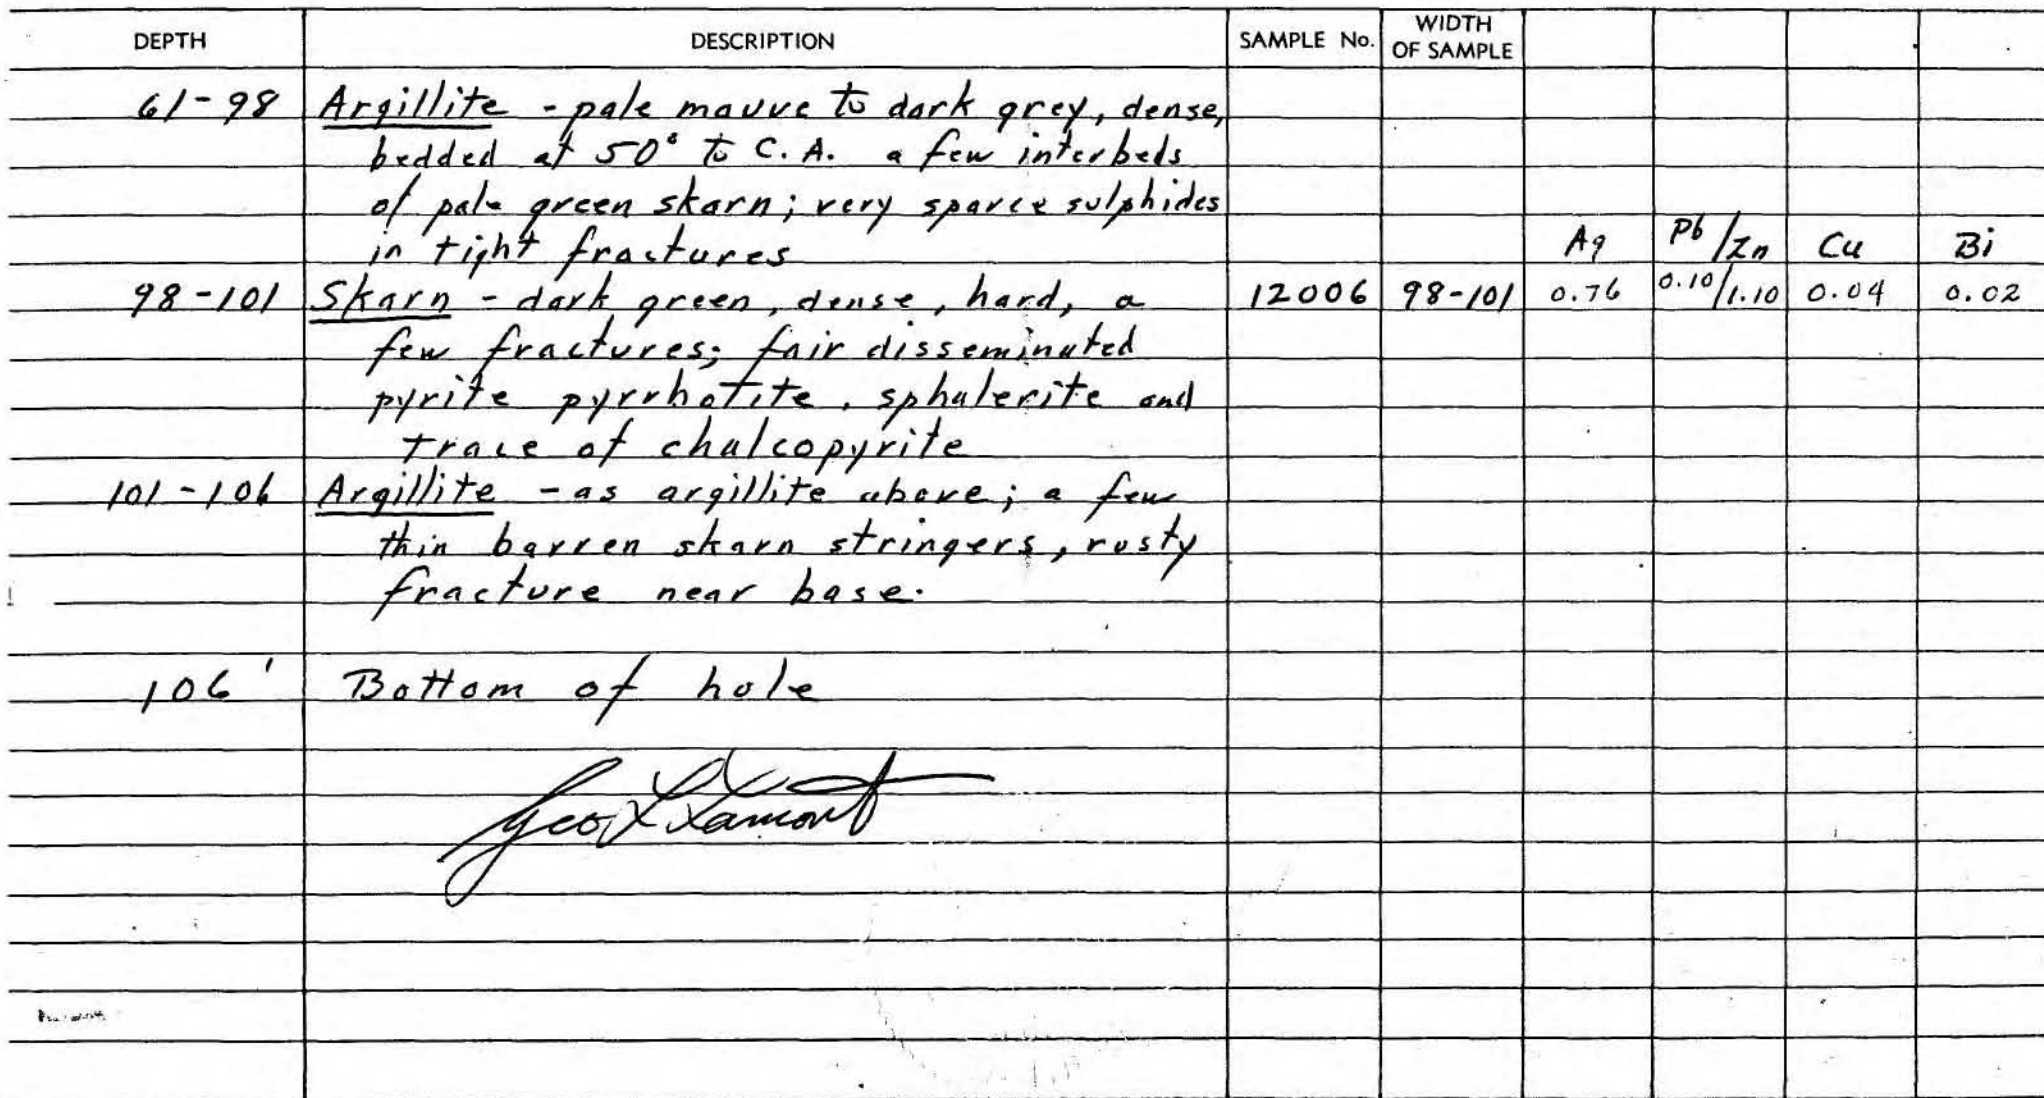 DEPTH DESCRIPTION SAMPLE No. WIDTH OF SAMPLE
61-98 Argillite - pale mauve to dark grey, dense,
bedded at 50° to C.A. a few interbeds
of pale green skarn; very sparce sulphides
in tight fractures Ag Pb/Zn Cu Bi
98-101 Skarn - dark green, dense, hard, a 12006 98-101 0.76 0.10/1.10 0.04 0.02
few fractures; fair disseminated
pyrite pyrrhotite, sphalerite and
trace of chalcopyrite
101-106 Argillite - as argillite above; a few
thin barren skarn stringers, rusty
fracture near base.
106' Bottom of hole
Geo. L Lamont